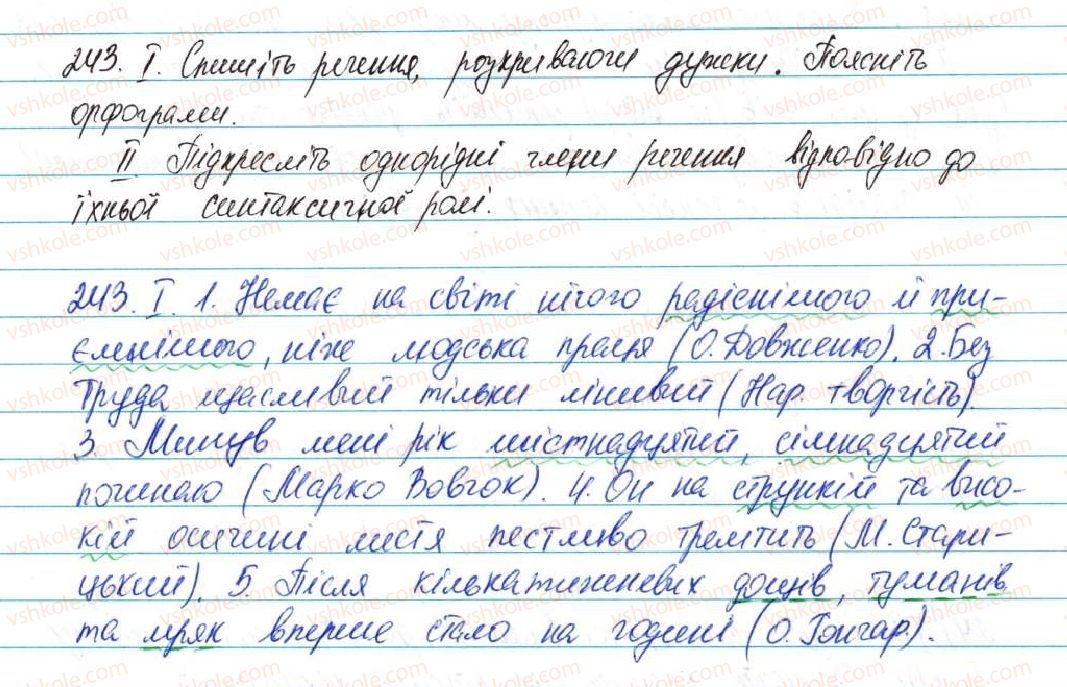 243. I. Спишіть речення, розкриваючи дужки. Поясніть
орфограми.
II. Підкресліть однорідні члени речення відповідно до
їхньої синтаксичної ролі.
243. I. 1. Немає на світі нічого радіснішого й при-
ємнішого, ніж людська праця (О. Довженко). 2. Без
труда щасливий тільки лінивий (Нар. творчість).
3. Минув мені рік шістнадцятий, сімнадцятий
починаю (Марко Вовчок). 4. Он на стрункій та висо-
кій осичині листя пестливо тремтить (М. Стари-
цький). 5. Після кількатижневих дощів, туманів
та мряк вперше стало на годині (О. Гончар).